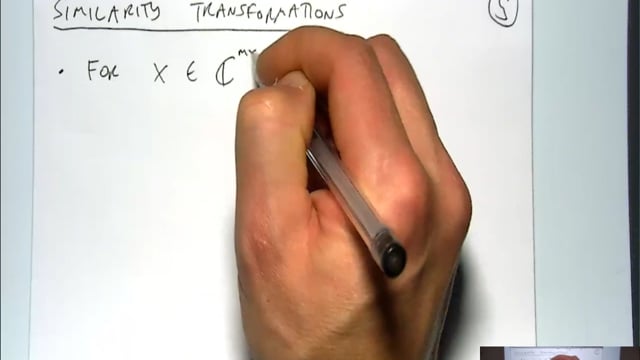 SIMILARITY TRANSFORMATIONS 5
• FOR X ∈ ℂᵐˣ